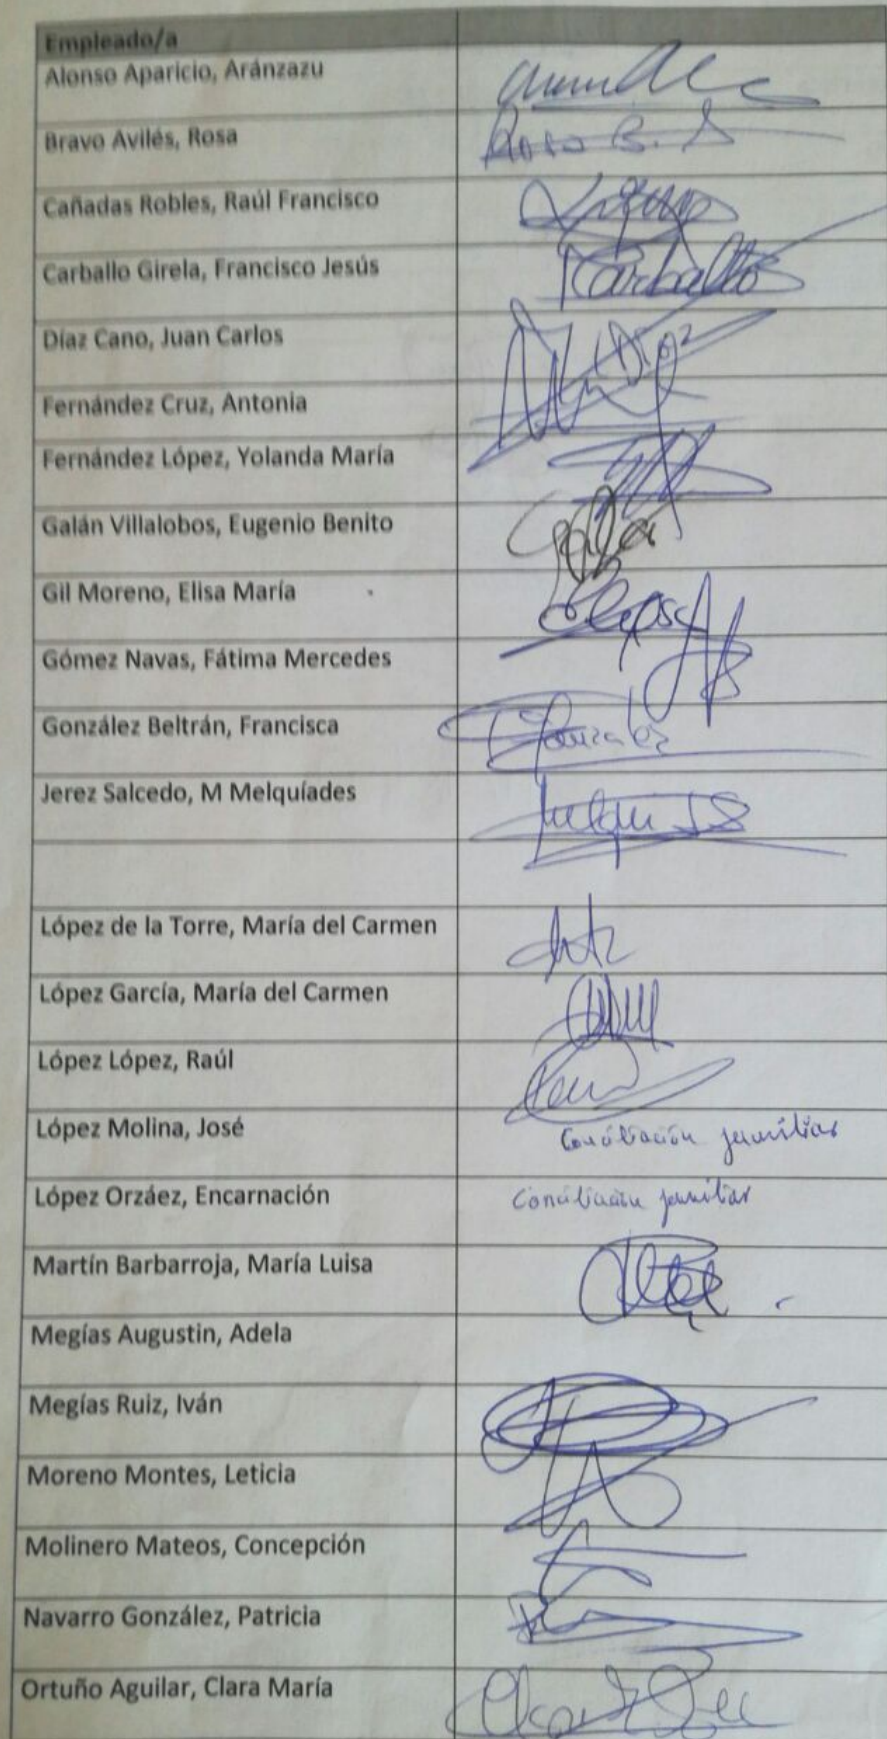 Empleado/a
Alonso Aparicio, Aránzazu
Bravo Avilés, Rosa
Rosa B. A
Cañadas Robles, Raúl Francisco
Carballo Girela, Francisco Jesús
Carballo
Díaz Cano, Juan Carlos
Díaz
Fernández Cruz, Antonia
Fernández López, Yolanda María
Galán Villalobos, Eugenio Benito
Gil Moreno, Elisa María
Gómez Navas, Fátima Mercedes
González Beltrán, Francisca
González
Jerez Salcedo, M Melquíades
Melqui JS
López de la Torre, María del Carmen
López García, María del Carmen
López López, Raúl
López Molina, José
Conciliación familiar
López Orzáez, Encarnación
Conciliación familiar
Martín Barbarroja, María Luisa
Megías Augustin, Adela
Megías Ruiz, Iván
Moreno Montes, Leticia
Molinero Mateos, Concepción
Navarro González, Patricia
Ortuño Aguilar, Clara María